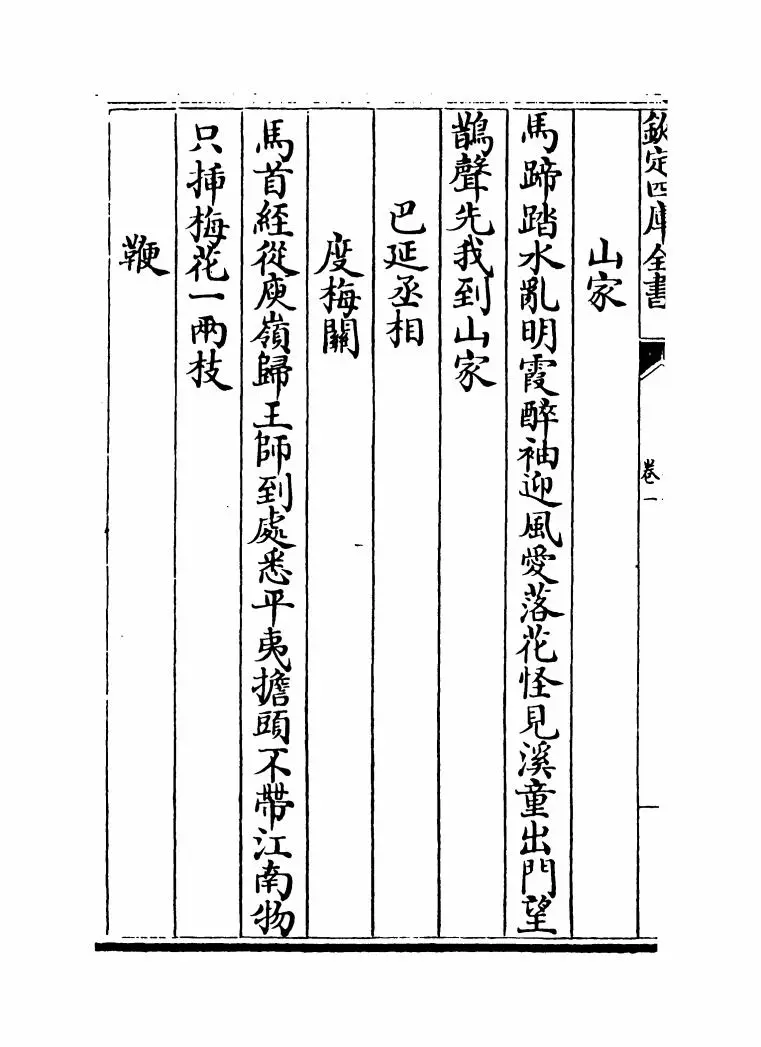 欽定四庫全書
卷一
山家
馬蹄踏水亂明霞醉袖迎風愛落花怪見溪童出門望
鵲聲先我到山家
巴延丞相
度梅關
馬首經從庾嶺歸王師到處悉平夷擔頭不帶江南物
只揷梅花一兩枝
鞭